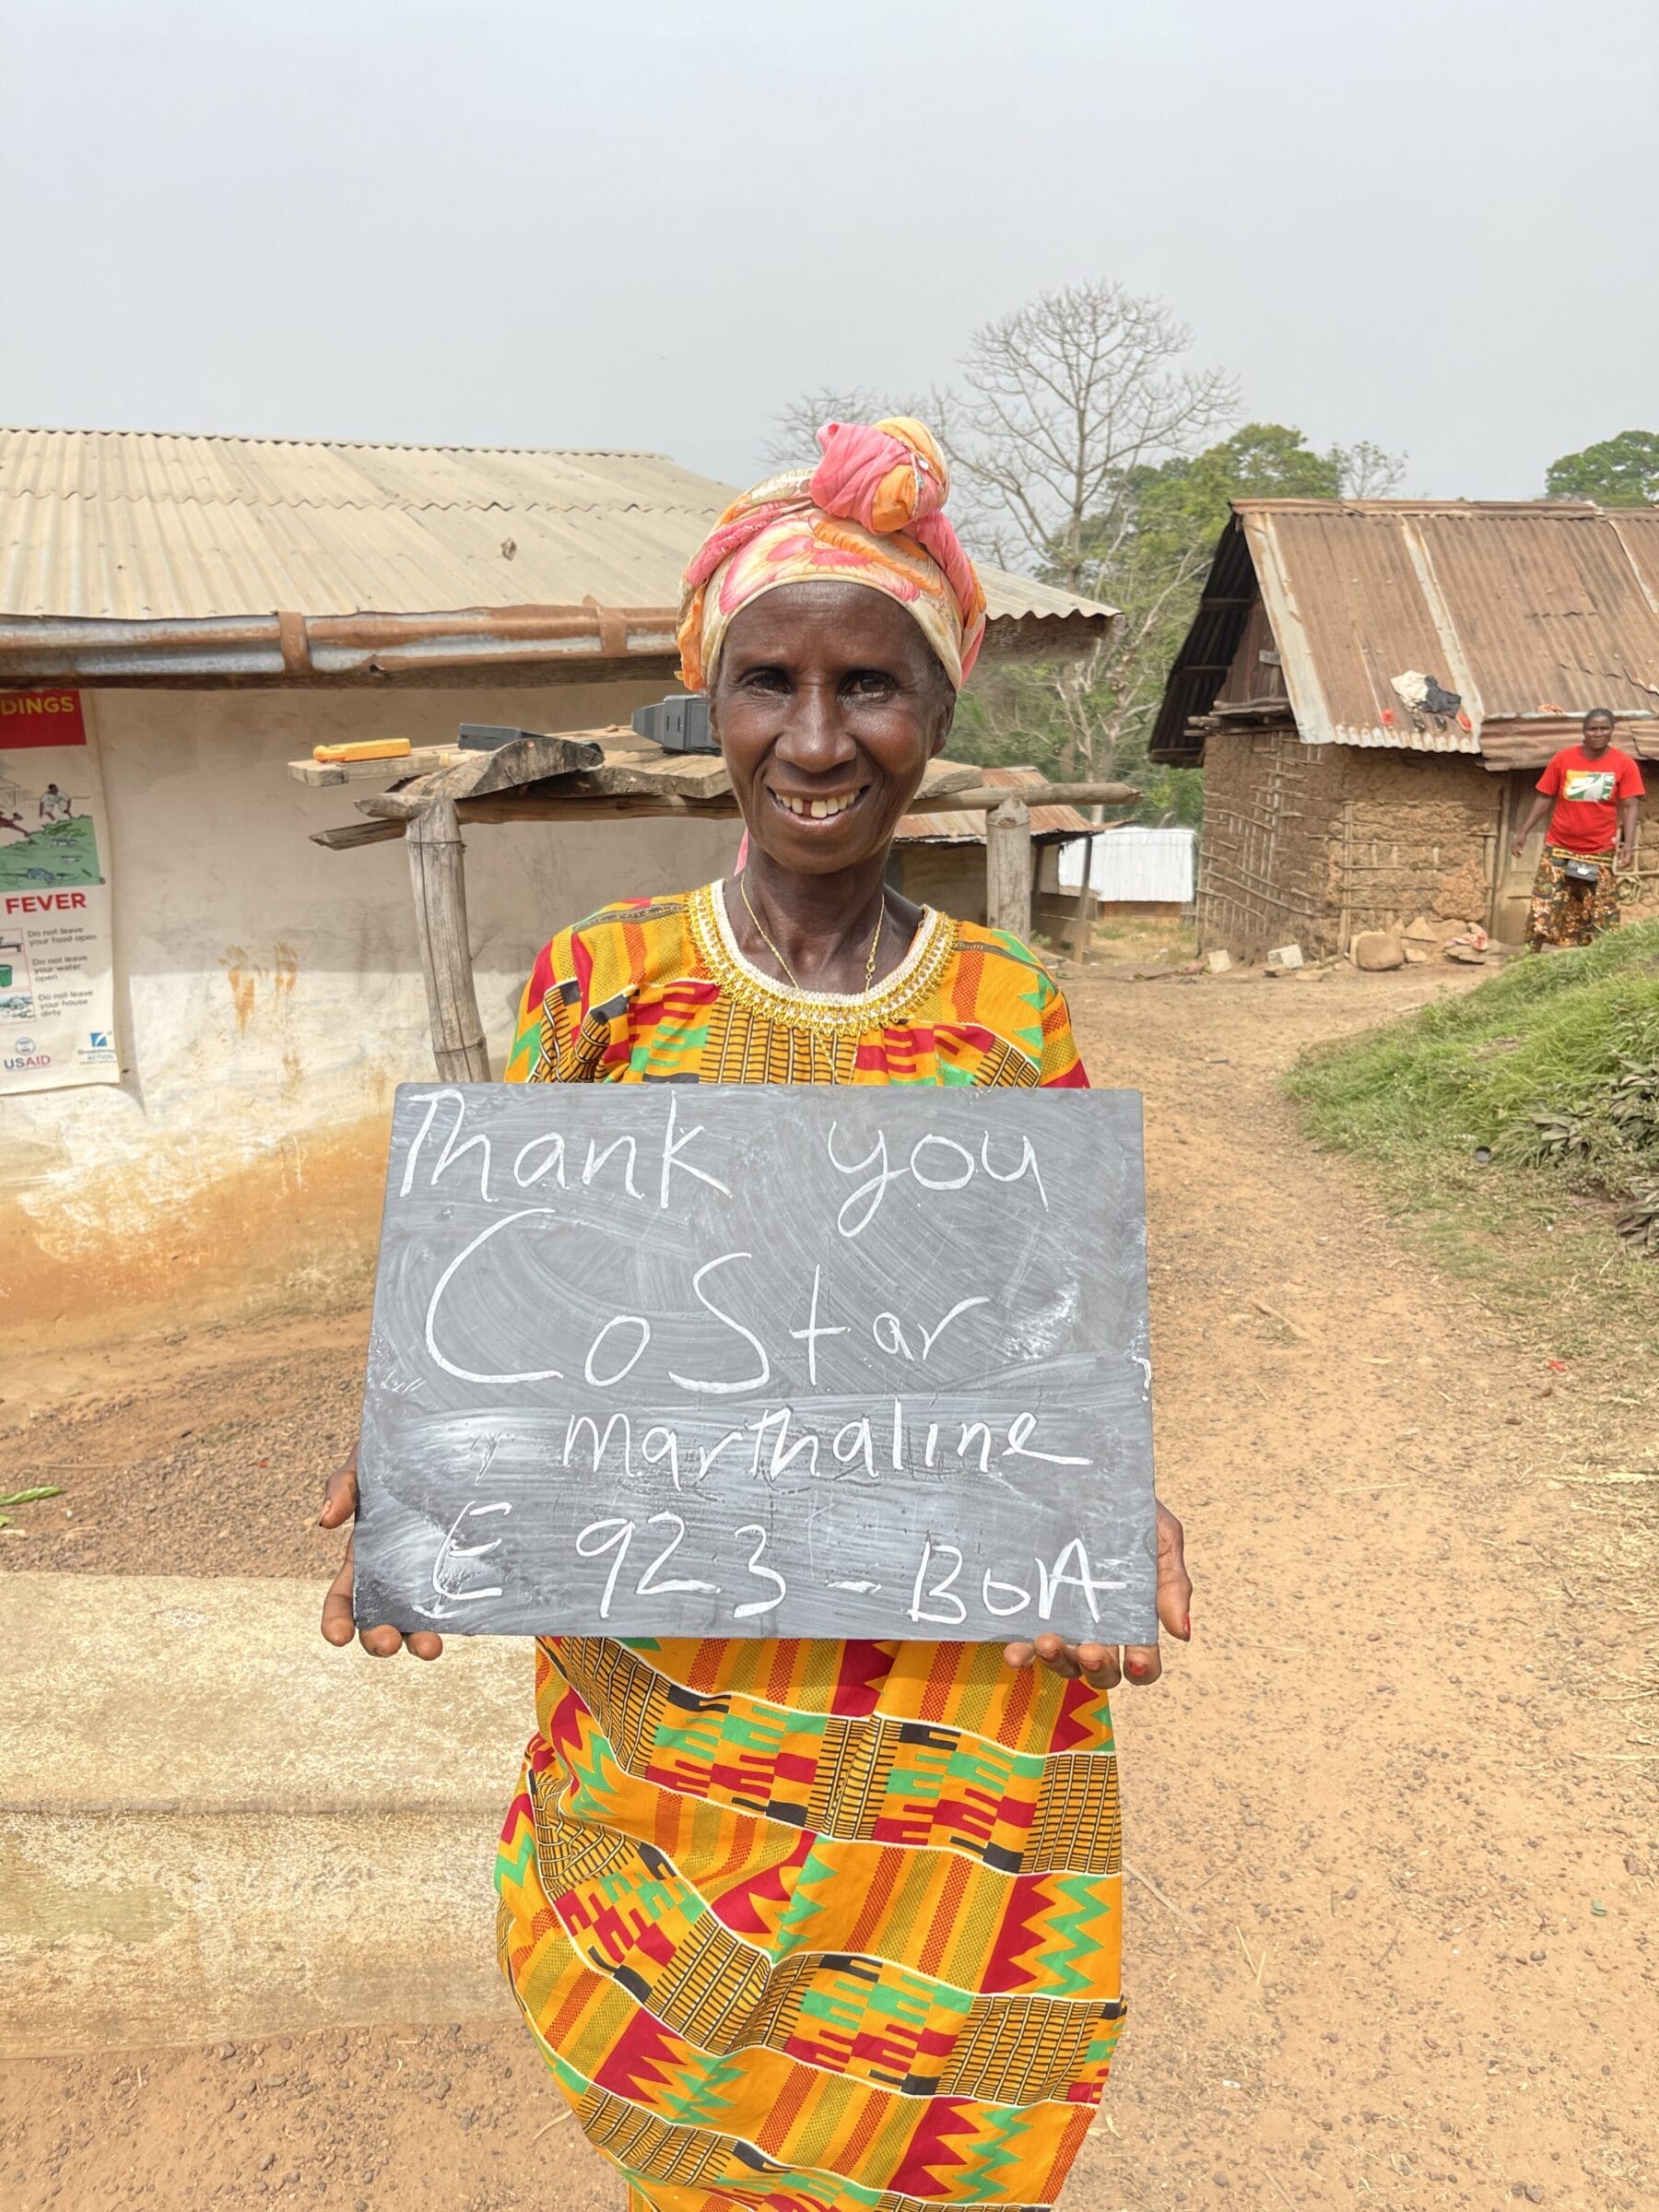 DINGS
FEVER
Do not leave
your food open
Do not leave
your water
open
Do not leave
your house
dirty
USAID
Breakthrough
ACTION
Thank you
CoStar
Marthaline
E 923 - BoA